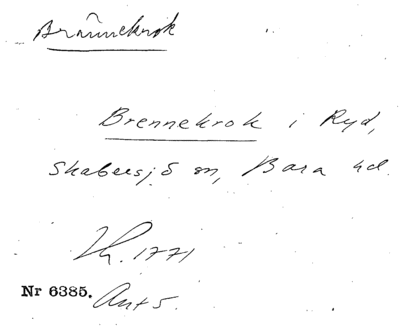 Brännekrok
Brennekrok i Ryd,
Skabersjö sn, Bara hd.
Th. 1771
Nr 6385. Ant 5.